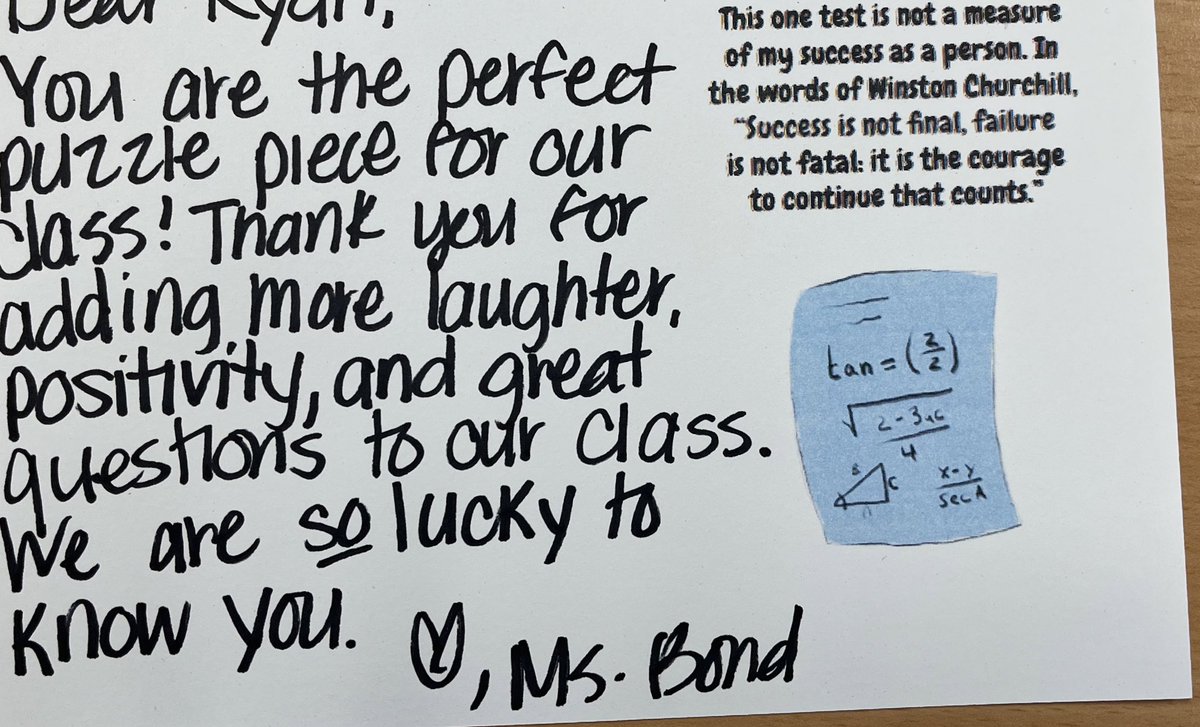 Dear Ryan,
You are the perfect
puzzle piece for our
class! Thank you for
adding more laughter,
positivity, and great
questions to our class.
We are so lucky to
know you.
, Ms. Bond
This one test is not a measure
of my success as a person. In
the words of Winston Churchill,
"Success is not final, failure
is not fatal: it is the courage
to continue that counts."
tan = (2/2)
√2-3
4
C
x-y
sec A